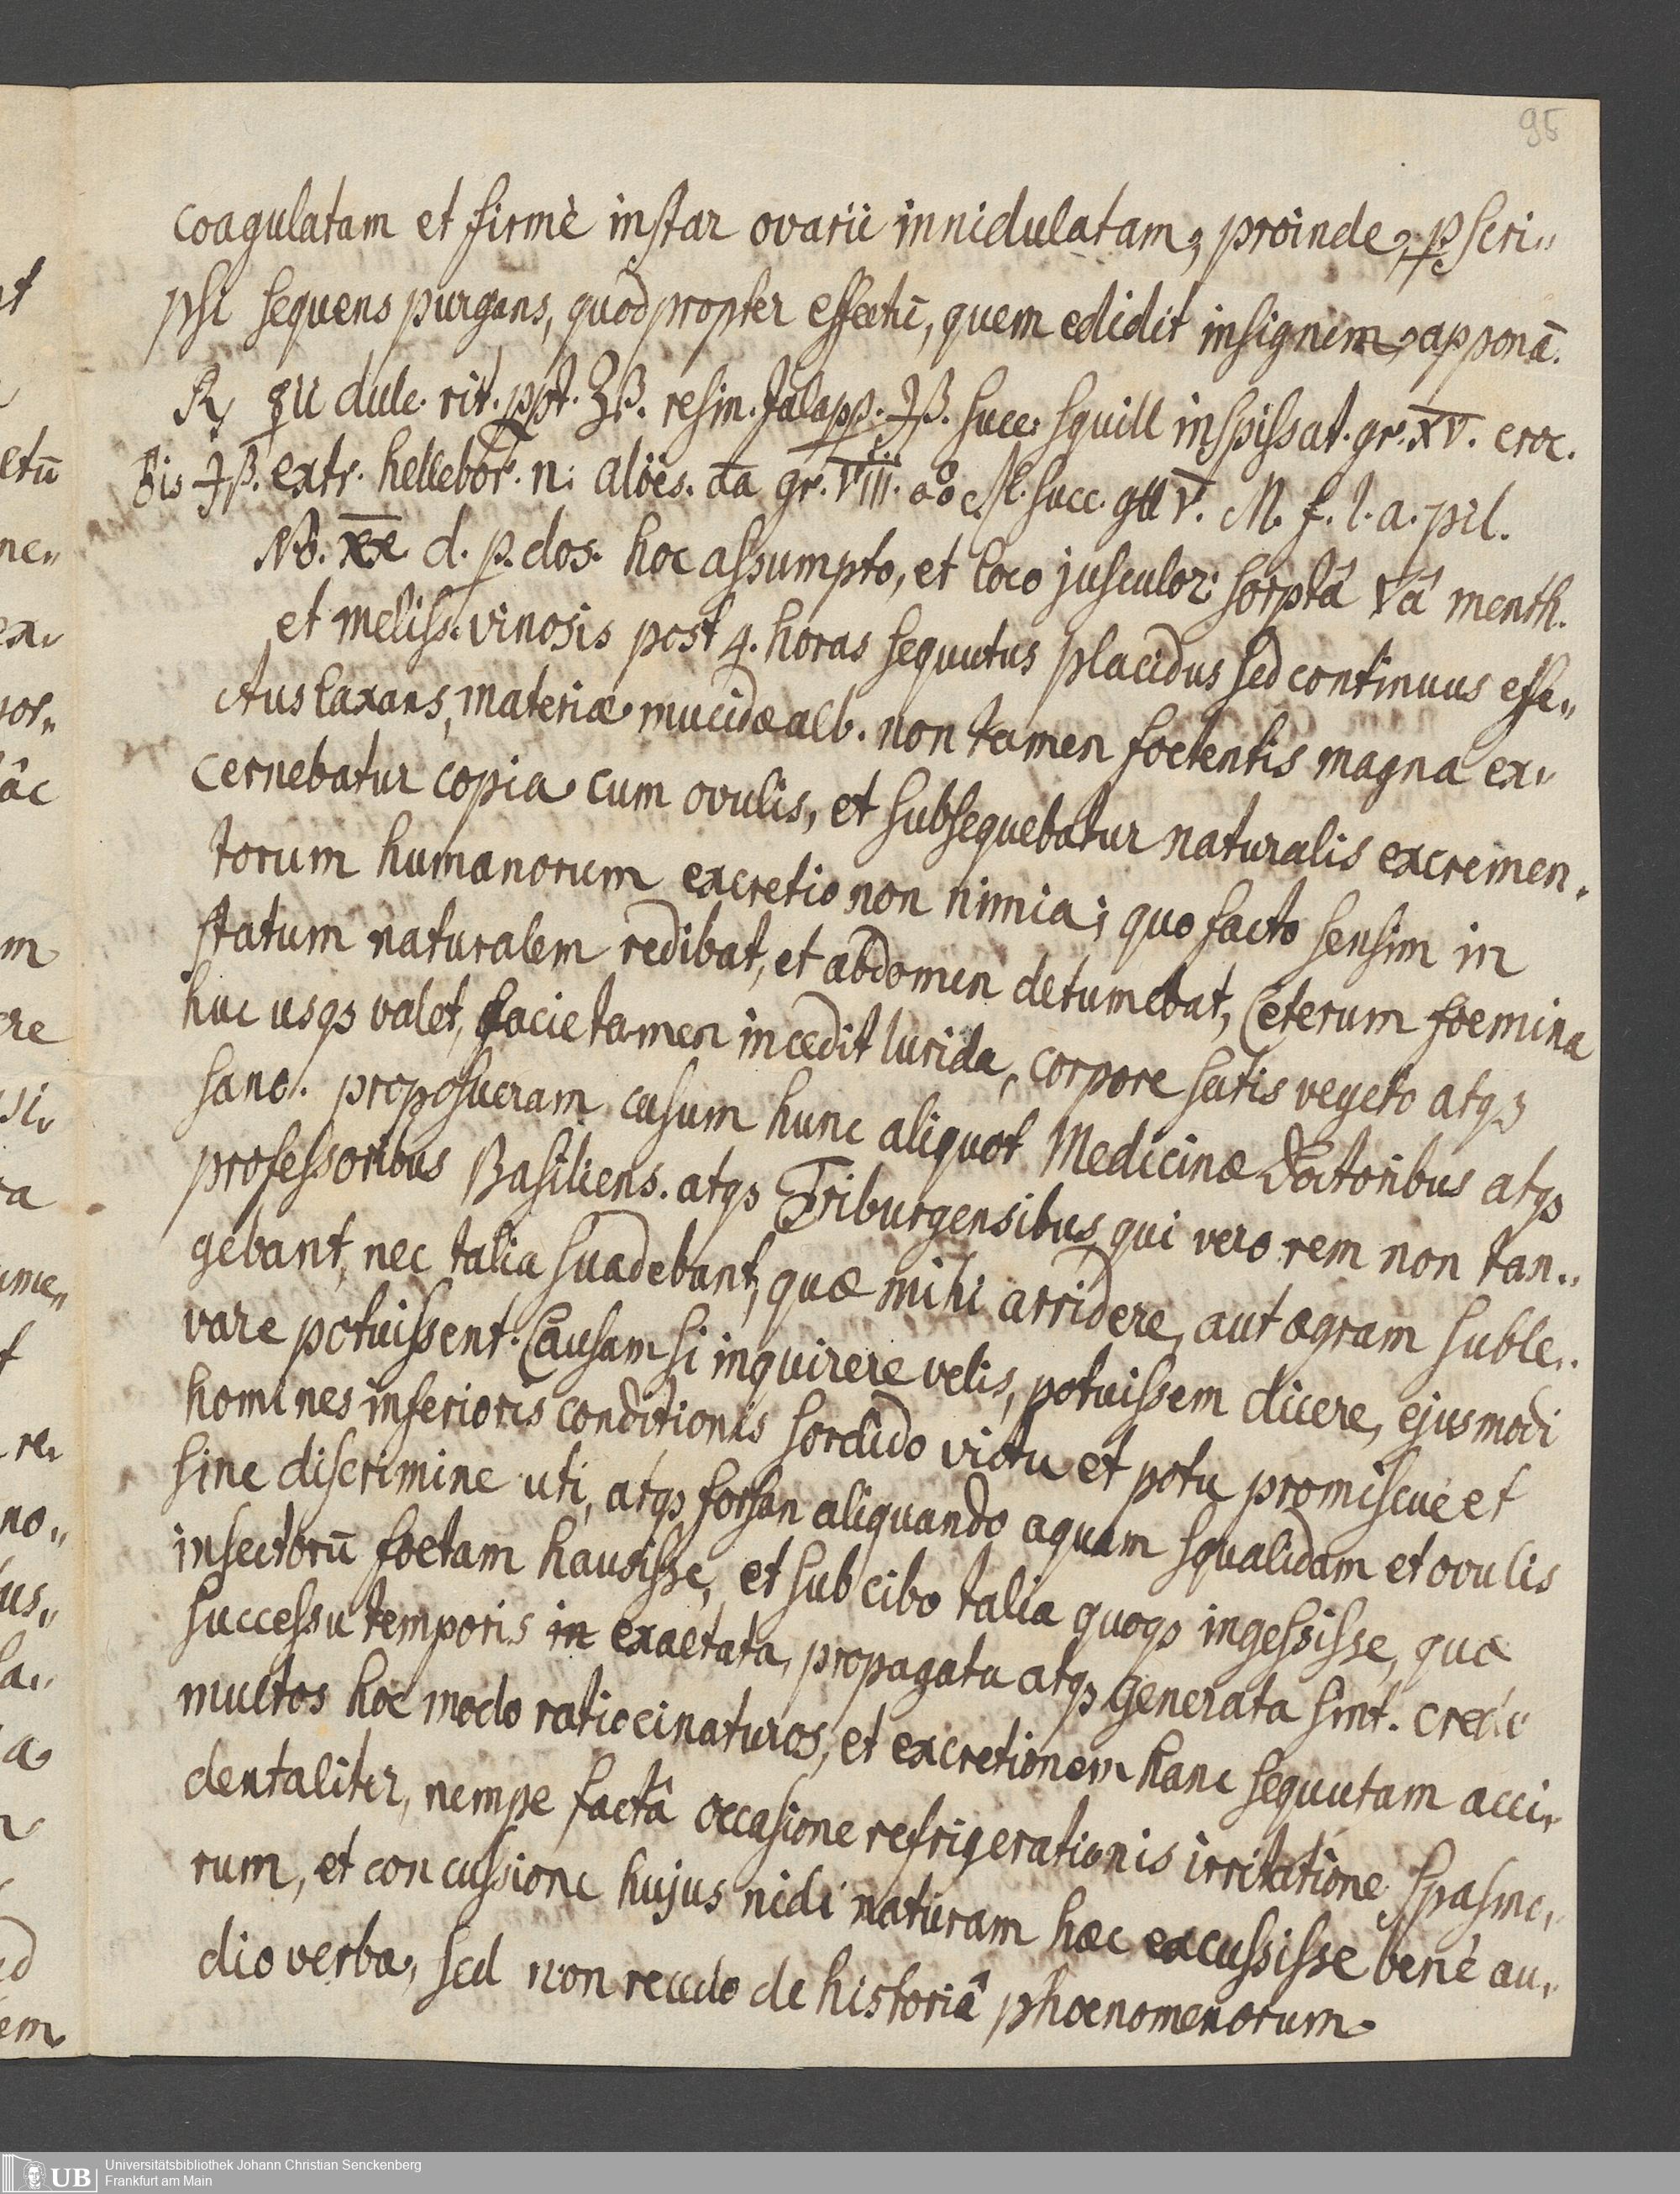 95
coagulatam et firmè instar ovarii innidulatam, proinde, p̄scri„
psi sequens purgans, quod propter effectū, quem edidit insignem, apponā.
℞ ☿ii dulc. rit. ppt. ℥ß. resin. Jalapp. ℈ß. succ. squill inspissat. gr. XV. croc.
♂is ℈ß. extr. hellebor. n. aloës. āā gr. VIII. succ. gtt V. M. f. l. a. pil.
No. XX d. p. dos. hoc assumpto, et loco jusculor: sorptâ ▽â menth.
et meliss. vinosis post 4. horas sequutus placidus sed continuus effe„
ctus laxans, materiæ mucidæ alb. non tamen foetentis magna ex„
cernebatur copia cum ovulis, et subsequebatur naturalis excremen„
torum humanorum excretio non nimia; quo facto sensim in
statum naturalem redibat, et abdomen detumebat, Ceterum foemina
huc usqs valet, facie tamen incedit lurida, corpore satis vegeto atqs
sano. proposueram casum hunc aliquot Medicinæ Doctoribus atqs
professoribus Basiliens. atqs Friburgensibus qui vero rem non tan„
gebant, nec talia suadebant, quæ mihi arridere, aut ægram suble„
vare potuissent. Causam si inquirere velis, potuissem dicere, ejusmodi
homines inferioris conditionis sordido victu et potu promiscuè et
sine discrimine uti, atqs forsan aliquando aquam squalidam et ovulis
insectorū foetam hausisse, et sub cibo talia quoqs ingessisse, quæ
successu temporis in exaetata, propagata atqs generata sint. credo
multos hoc modo ratiocinaturos, et excretionem hanc sequutam acci„
dentaliter, nempe factâ occasione refrigerationis irritatione spasmo„
rum, et concussione hujus nidi naturam hæc excussisse benè au„
dio verba, sed non recedo de historiâ phoenomenorum.
UB Universitätsbibliothek Johann Christian Senckenberg
Frankfurt am Main